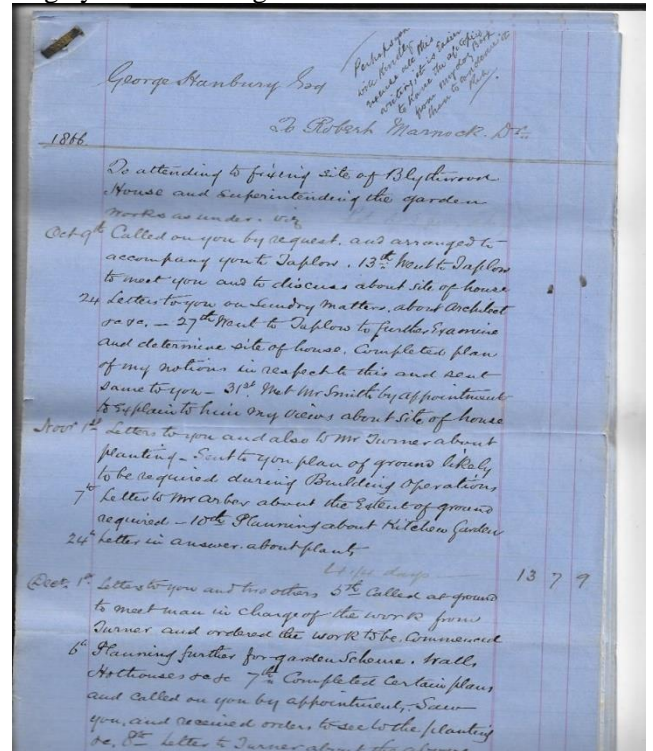 George Hanbury Esq
Perhaps you
will kindly
all this
writing it is easier
to have the
from my day Book
than to
To Robert Marnock. Dr.
1866
To attending to fixing site of Blythewood
House and Superintending the garden
works as under. viz
Oct 9th Called on you by request. and arranged to
accompany you to Taplow. 13th Went to Taplow
to meet you and to discuss about site of house
24 Letters to you on Sundry matters, about Architect
&c &c. – 27th Went to Taplow to further Examine
and determine site of house. Completed plan
of my notions in respect to this and sent
same to you – 31st. Met Mr Smith by appointment
to Explain to him my views about Site of house
Novr 1st Letters to you and also to Mr Turner about
planting – Sent to you plan of ground likely
to be required during Building operations
7th Letter to Mr about the Extent of ground
required – 10th Planning about Kitchen Garden
24th Letter in answer about plants
days 13 7 9
Decr. 1st Letters to you and two others 5th Called at ground
to meet man in charge of the work from
Turner and ordered the work to be Commenced
6th Planning further for garden Scheme. Walls
Hothouses &c &c 7th Completed Certain plans
and called on you by appointment, Saw
you, and received orders to see to the planting
&c. 8th Letter to Turner about the above